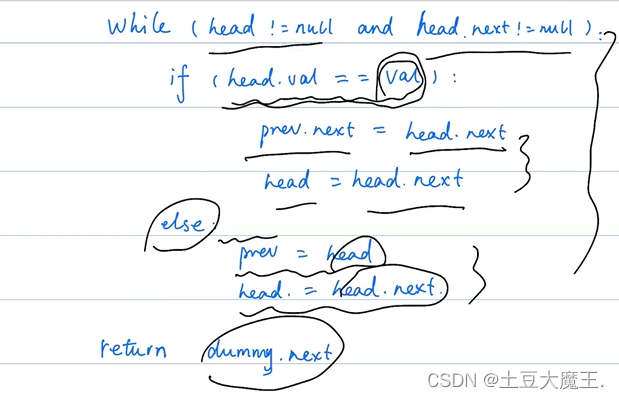 while (head != null and head.next != null):
if (head.val == val):
prev.next = head.next
head = head.next
else.
prev = head
head. = head.next.
return dummy.next
CSDN @土豆大魔王.